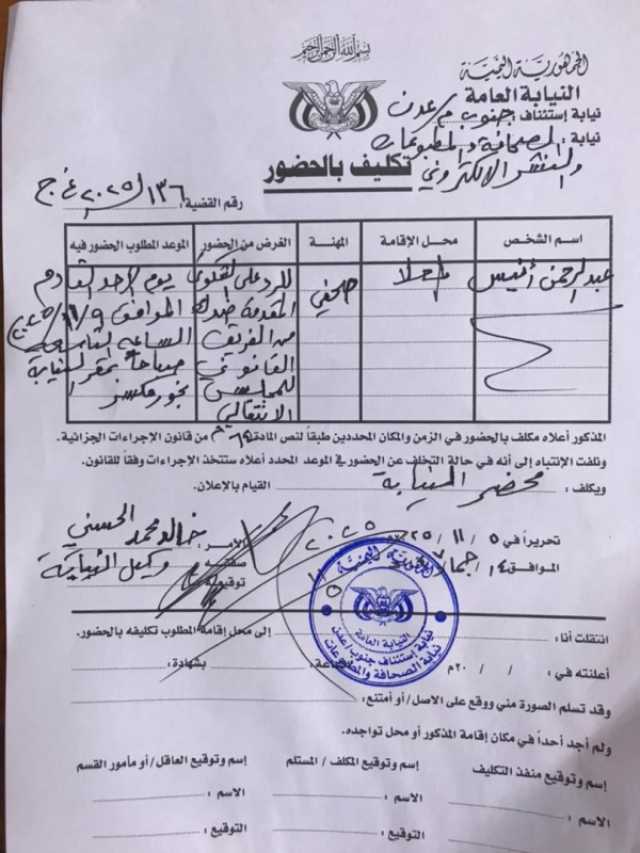 بسم الله الرحمن الرحيم
الجمهورية اليمنية
النيابة العامة
نيابة إستئناف جنوب م/عدن
نيابة : الصحافة والمطبوعات
والنشر الإلكتروني
تكليف بالحضور
رقم القضية : ١٣٦ / ٢٠٢٥ غ ج
اسم الشخص محل الإقامة المهنة الغرض من الحضور الموعد المطلوب الحضور فيه
عبدالرحمن أنيس المعلا صحفي للرد على الشكوى يوم الأحد القادم
المقدمة ضدك الموافق ٩/١١/٢٠٢٥
من الفريق الساعة التاسعة
القانوني صباحاً بمقر النيابة
للمجلس بخور مكسر
الانتقالي
المذكور أعلاه مكلف بالحضور في الزمن والمكان المحددين طبقاً لنص المادة ٦٥ من قانون الإجراءات الجزائية.
ونلفت الإنتباه إلى أنه في حالة التخلف عن الحضور في الموعد المحدد أعلاه ستتخذ الإجراءات وفقاً للقانون.
ويكلف : محضر النيابة القيام بالإعلان.
تحريراً في ٥ / ١١ / ٢٠٢٥
الموافق ١٤ / جماد
الآمر : خالد محمد الحسني
صفته : وكيل النيابة
توقيعه
الجمهورية اليمنية
النيابة العامة
نيابة إستئناف جنوب / عدن
نيابة الصحافة والمطبوعات
انتقلت أنا : إلى محل إقامة المطلوب تكليفه بالحضور.
أعلنته في : / / ٢٠م الساعة : بشهادة :
وقد تسلم الصورة مني ووقع على الاصل/ أو أمتنع :
ولم أجد أحداً في مكان إقامة المذكور أو محل تواجده.
إسم وتوقيع منفذ التكليف إسم وتوقيع المكلف / المستلم إسم وتوقيع العاقل/ أو مأمور القسم
الاسم : الاسم : الاسم :
التوقيع : التوقيع : التوقيع :